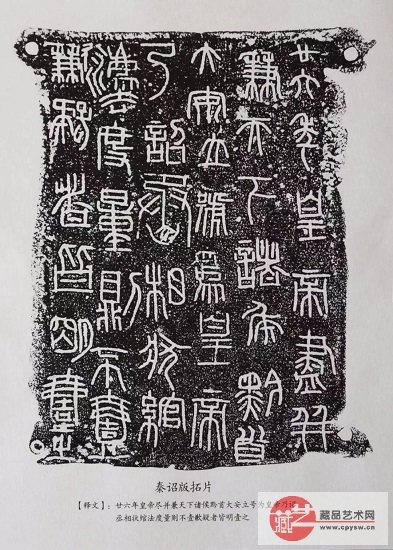 廿六年皇帝盡并
兼天下諸侯黔首
大安立號爲皇帝
乃詔丞相狀綰
灋度量則不壹
歉疑者皆明壹之
秦诏版拓片
【释文】：廿六年皇帝尽并兼天下诸候黔首大安立号为皇帝乃诏
丞相状绾法度量则不壹歉疑者皆明壹之
藏品艺术网
www.cpysw.cn